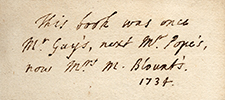 This book was once
Mr Gay's, next Mr Pope's,
now Mrs M. Blount's.
1734.